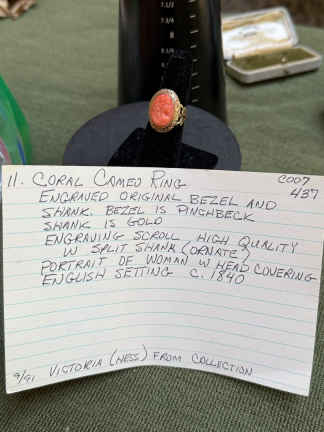 7.1/2
7.1/4
8
9
11. CORAL CAMEO RING
COO7
437
ENGRAVED ORIGINAL BEZEL AND
SHANK. BEZEL IS PINCHBECK
SHANK IS GOLD
ENGRAVING SCROLL HIGH QUALITY
W SPLIT SHANK (ORNATE)
PORTRAIT OF WOMAN W HEAD COVERING
ENGLISH SETTING C. 1840
9/91 VICTORIA (NESS) FROM COLLECTION